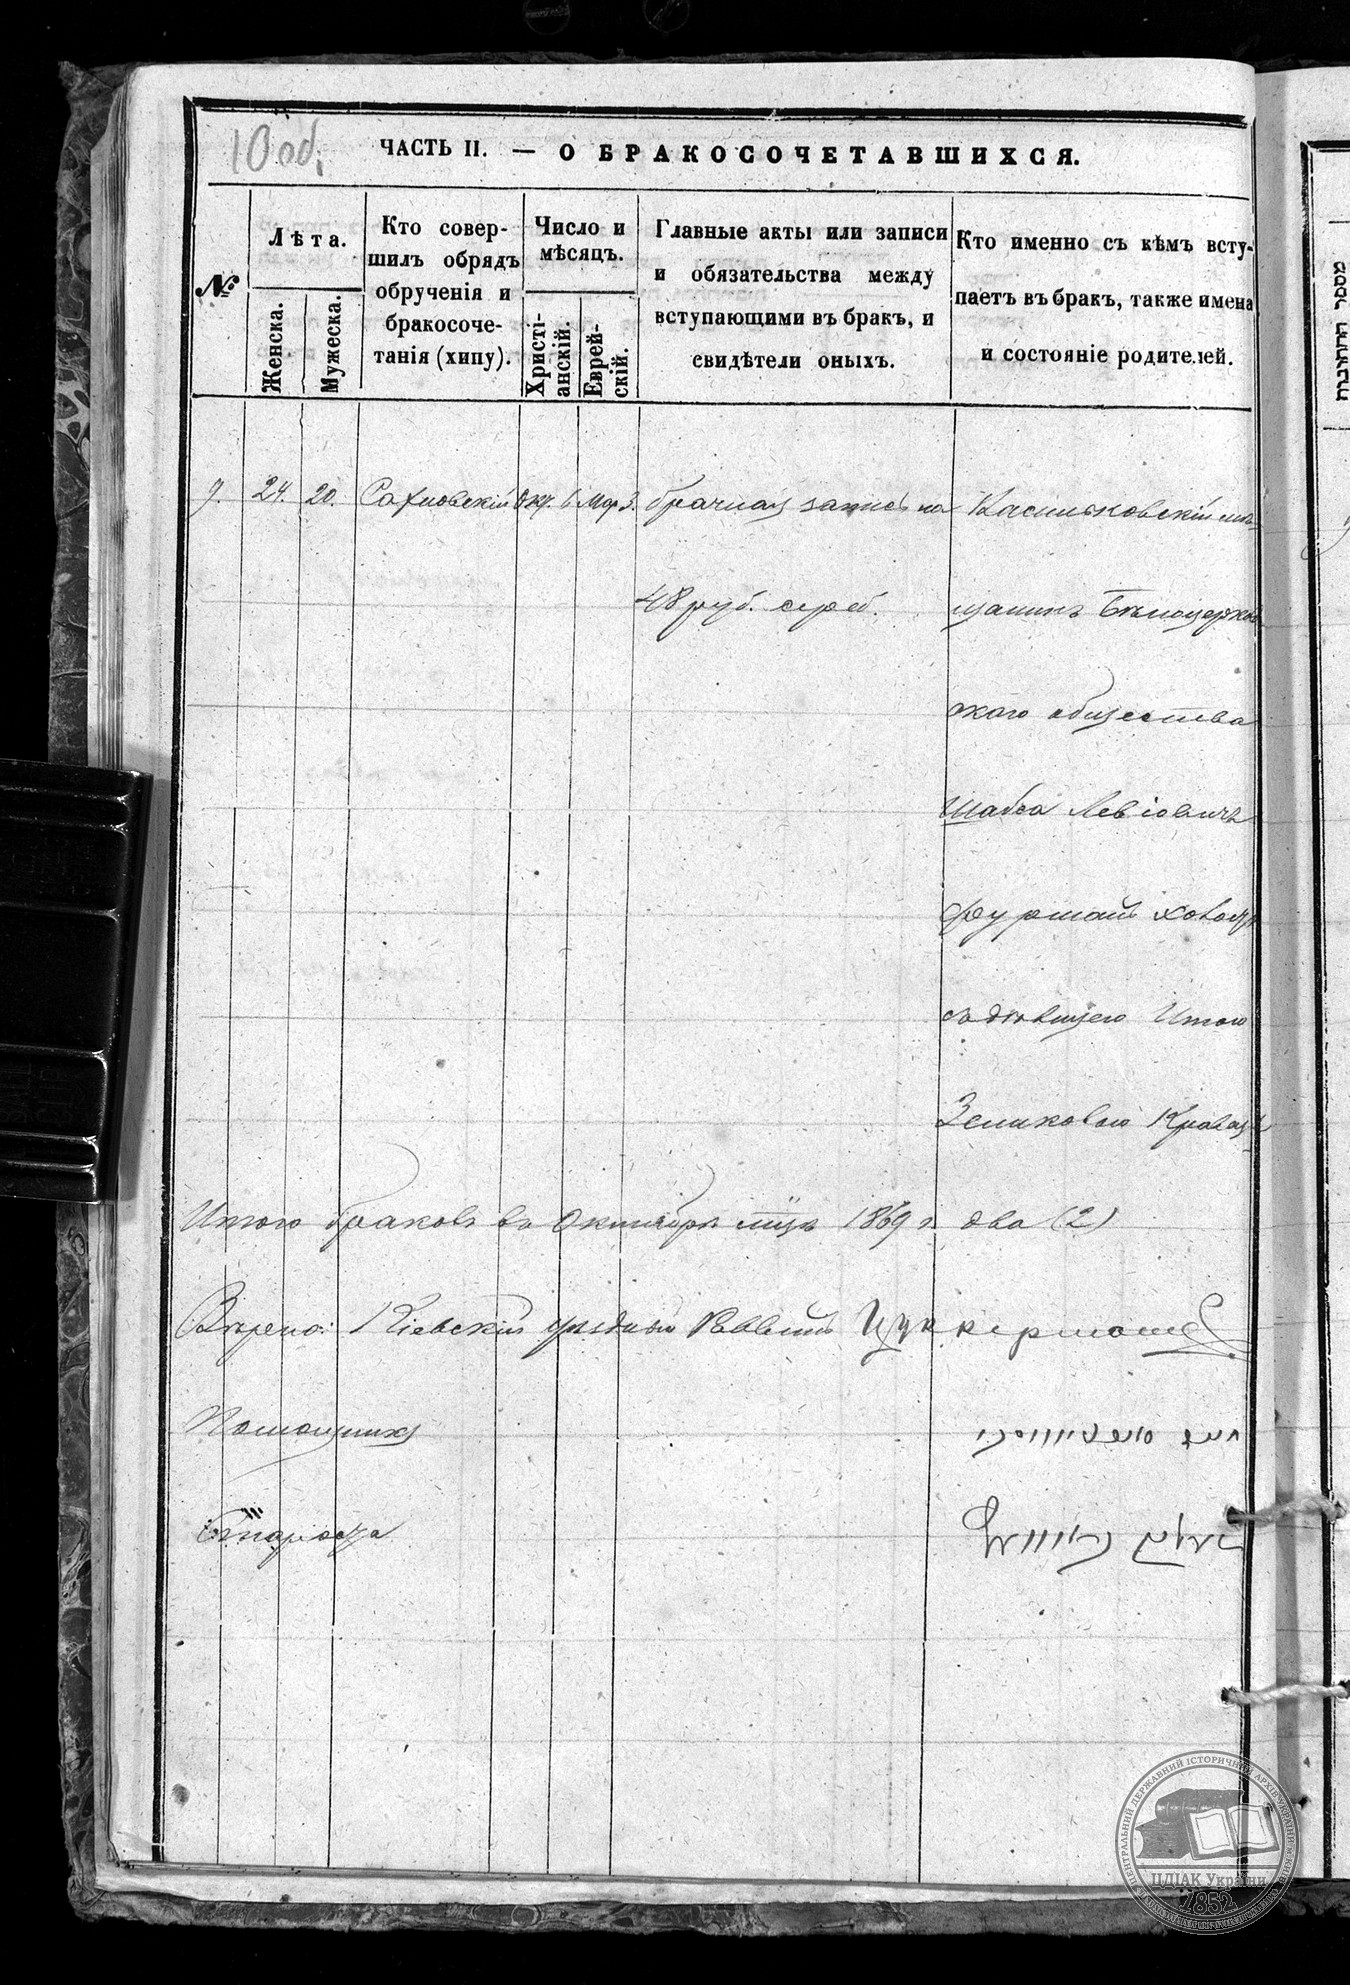 10 об.
ЧАСТЬ II. — О БРАКОСОЧЕТАВШИХСЯ.
№
Лѣта.
Женска.
Мужеска.
Кто совер-
шилъ обрядъ
обрученія и
бракосоче-
танія (хипу).
Число и
мѣсяцъ.
Христі-
анскій.
Еврей-
скій.
Главные акты или записи
и обязательства между
вступающими въ бракъ, и
свидѣтели оныхъ.
Кто именно съ кѣмъ всту-
паетъ въ бракъ, также имена
и состояніе родителей.
מספר החתונה
24. 20. Сахновскій Окт. 6 Мар 3. брачная запись на
48 руб. сереб.
Васильковскій мѣ-
щанинъ Бѣлоцерков
скаго общества
Шабса Левіовичъ
Фурманъ холост
съ дѣвицею Итою
Зеликовою Кравец
Итого браковъ въ Октябрѣ мцѣ 1869 г. два (2)
Вѣрно: Кіевскій уѣздный Раввинъ Цуккерманъ
Помощникъ
Староста
ЦЕНТРАЛЬНИЙ ДЕРЖАВНИЙ ІСТОРИЧНИЙ АРХІВ УКРАЇНИ
ЦДІАК України
1852